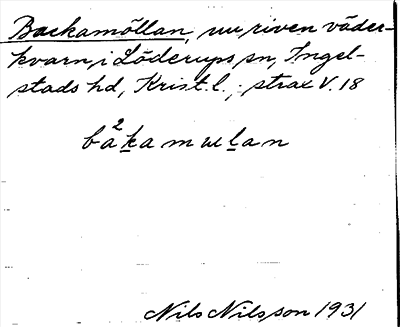 Backamöllan, nu riven väder-
kvarn, i Löderups sn, Ingel-
stads hd, Krist. l.; strax V. 18
ba²kamulan
Nils Nilsson 1931